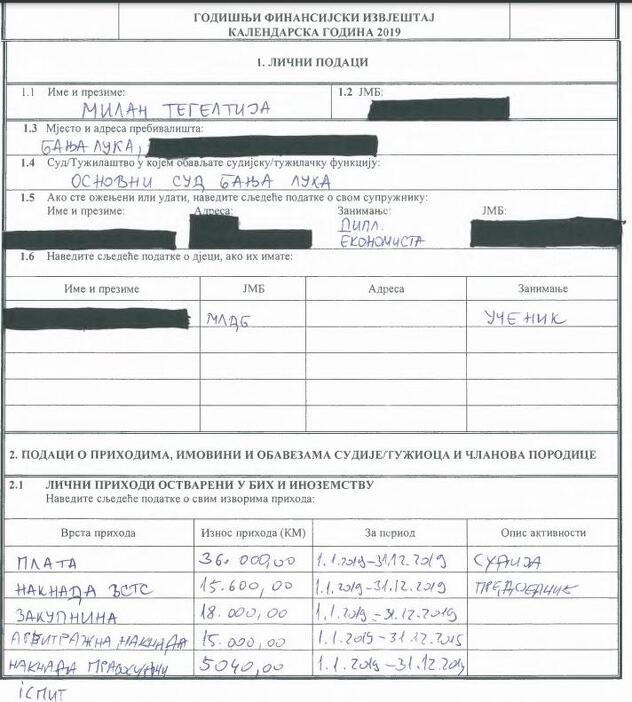 ГОДИШЊИ ФИНАНСИЈСКИ ИЗВЈЕШТАЈ
КАЛЕНДАРСКА ГОДИНА 2019
1. ЛИЧНИ ПОДАЦИ
1.1 Име и презиме: 1.2 ЈМБ:
МИЛАН ТЕГЕЛТИЈА
1.3 Мјесто и адреса пребивалишта:
БАЊА ЛУКА,
1.4 Суд/Тужилаштво у којем обављате судијску/тужилачку функцију:
ОСНОВНИ СУД БАЊА ЛУКА
1.5 Ако сте ожењени или удати, наведите сљедеће податке о свом супружнику:
Име и презиме: Адреса: Занимање: ЈМБ:
ДИПЛ.
ЕКОНОМИСТА
1.6 Наведите сљедеће податке о дјеци, ако их имате:
Име и презиме ЈМБ Адреса Занимање
МЛДБ УЧЕНИК
2. ПОДАЦИ О ПРИХОДИМА, ИМОВИНИ И ОБАВЕЗАМА СУДИЈЕ/ТУЖИОЦА И ЧЛАНОВА ПОРОДИЦЕ
2.1 ЛИЧНИ ПРИХОДИ ОСТВАРЕНИ У БИХ И ИНОЗЕМСТВУ
Наведите сљедеће податке о свим изворима прихода:
Врста прихода Износ прихода (КМ) За период Опис активности
ПЛАТА 36.000,00 1.1.2019-31.12.2019 СУДИЈА
НАКНАДА ВСТС 15.600,00 1.1.2019-31.12.2019 ПРЕДСЈЕДНИК
ЗАКУПНИНА 18.000,00 1.1.2019-31.12.2019
АРБИТРАЖНА НАКНАДА 15.000,00 1.1.2019-31.12.2019
НАКНАДА ПРАВОСУДНИ 5040,00 1.1.2019-31.12.2019
ИСПИТ